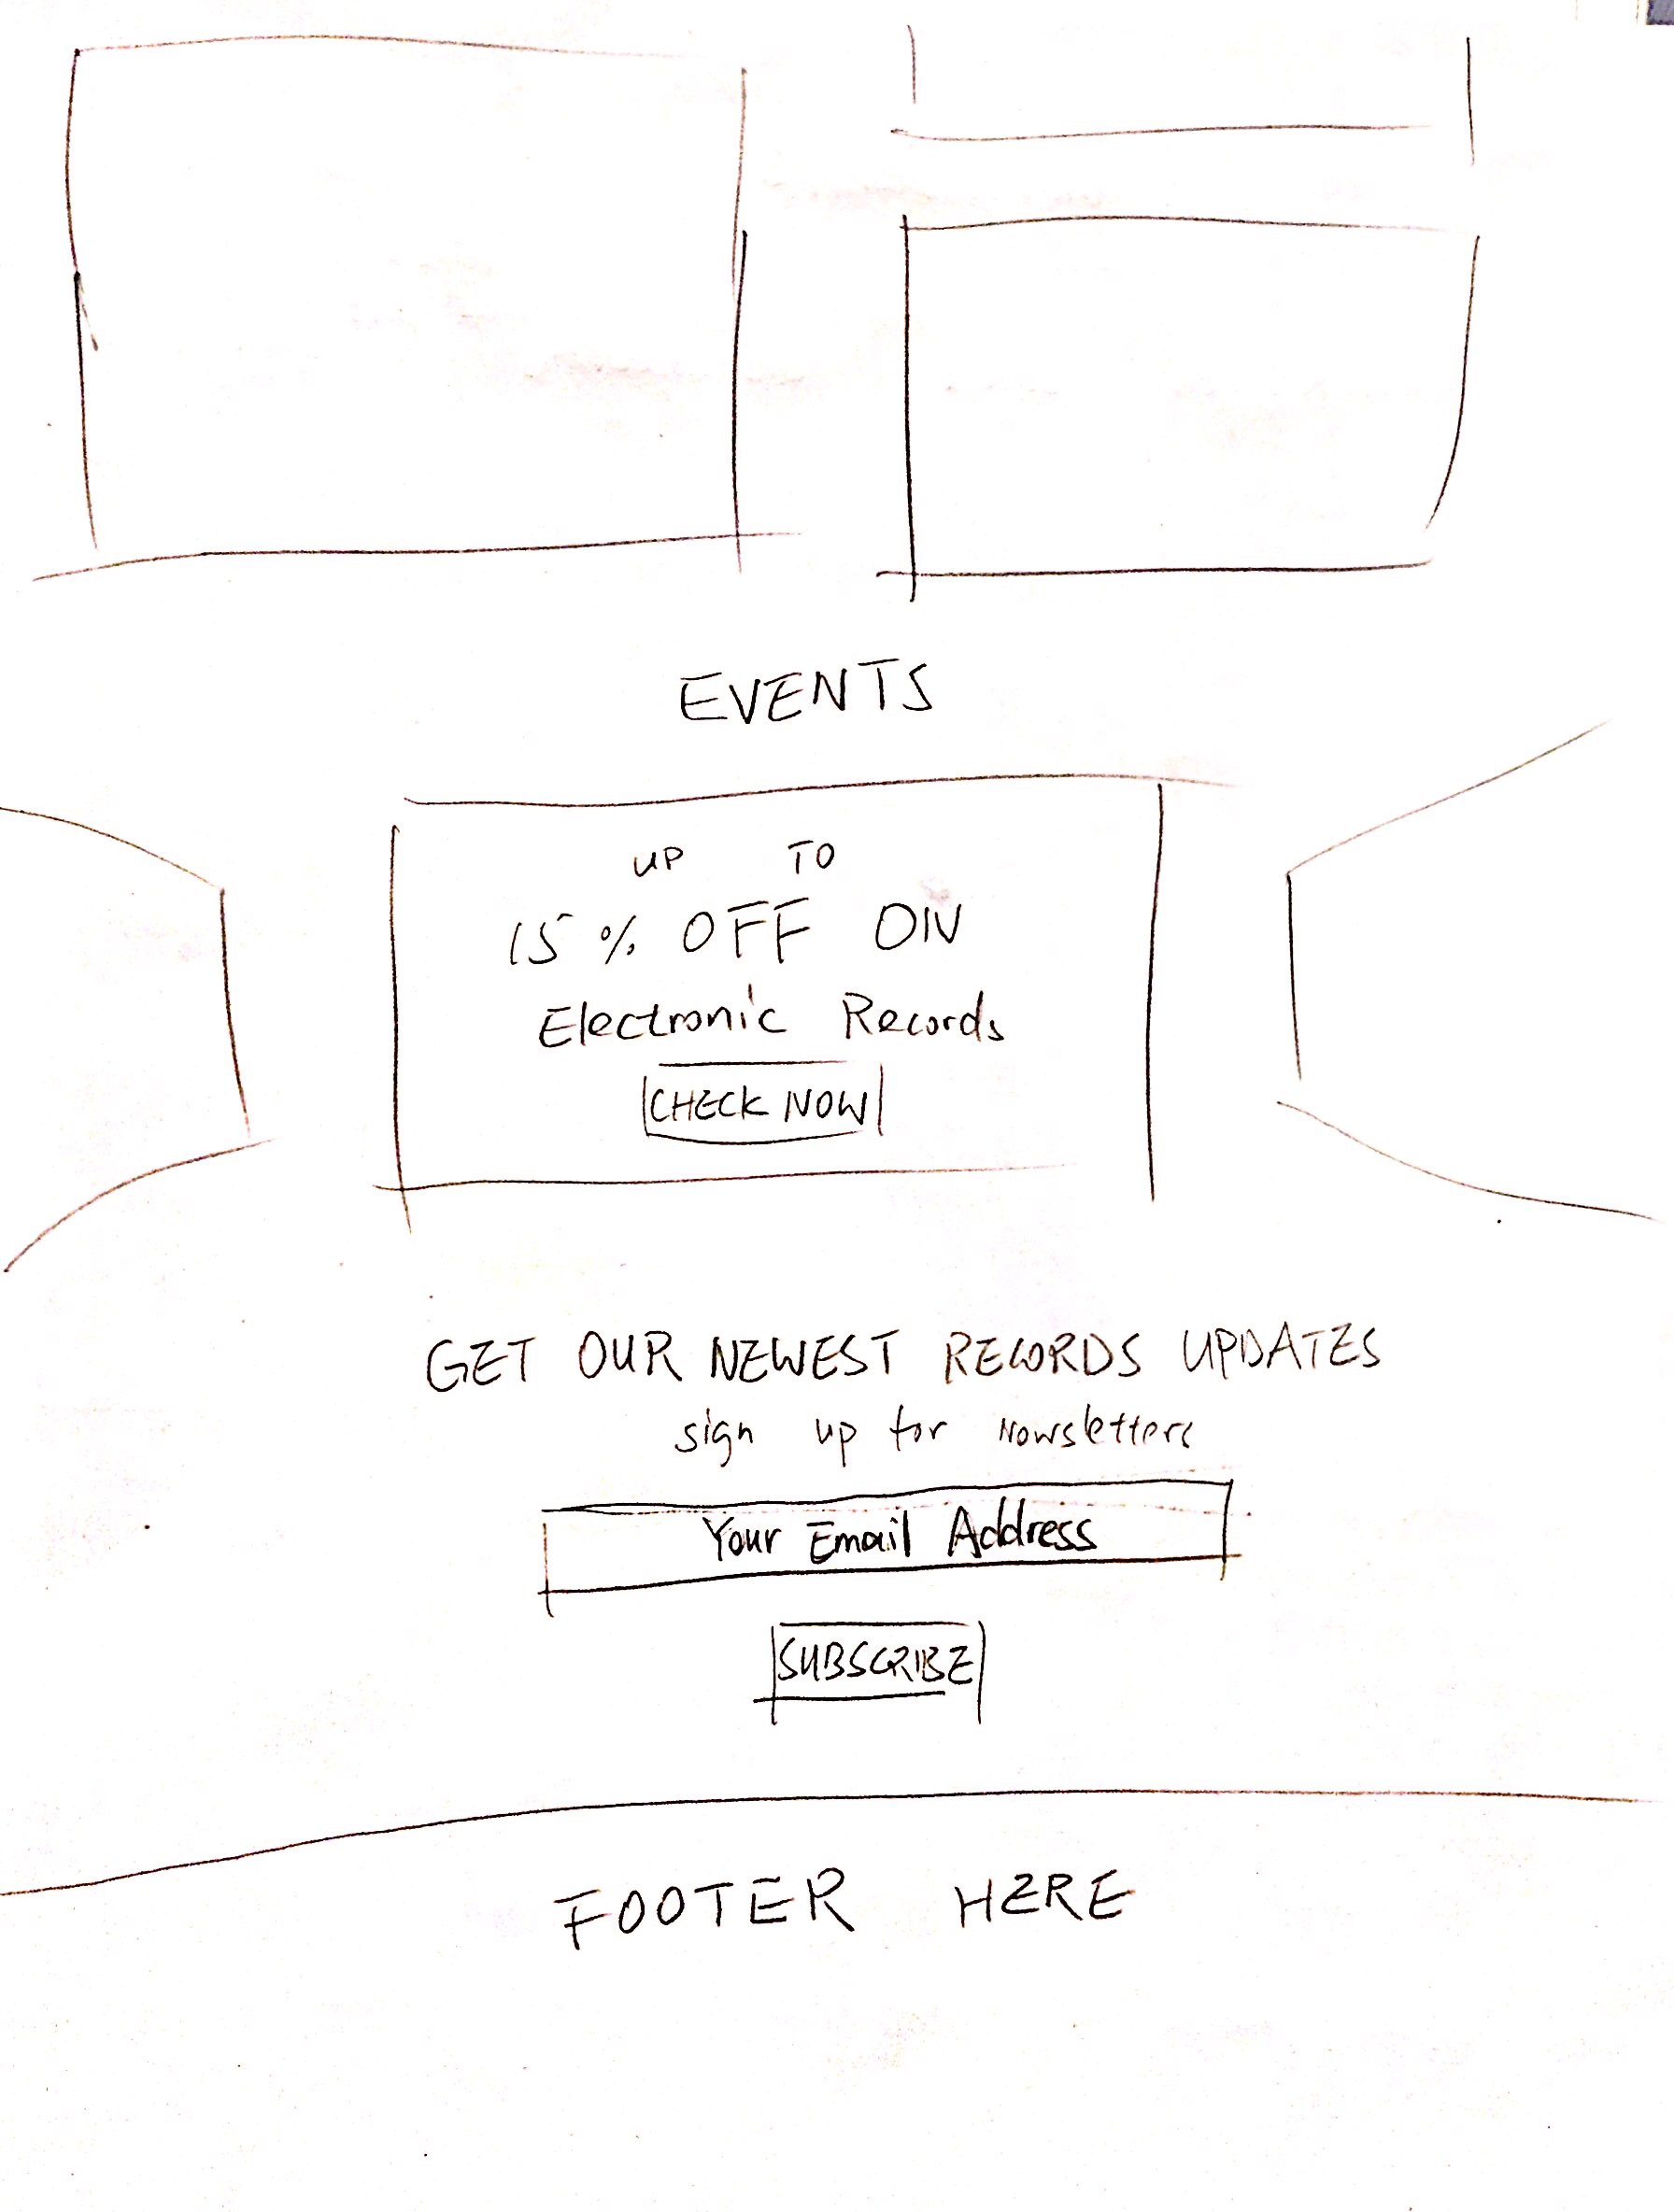 EVENTS
UP TO
15% OFF ON
Electronic Records
CHECK NOW
GET OUR NEWEST RECORDS UPDATES
sign up for Nowsletters
Your Email Address
SUBSCRIBE
FOOTER HERE